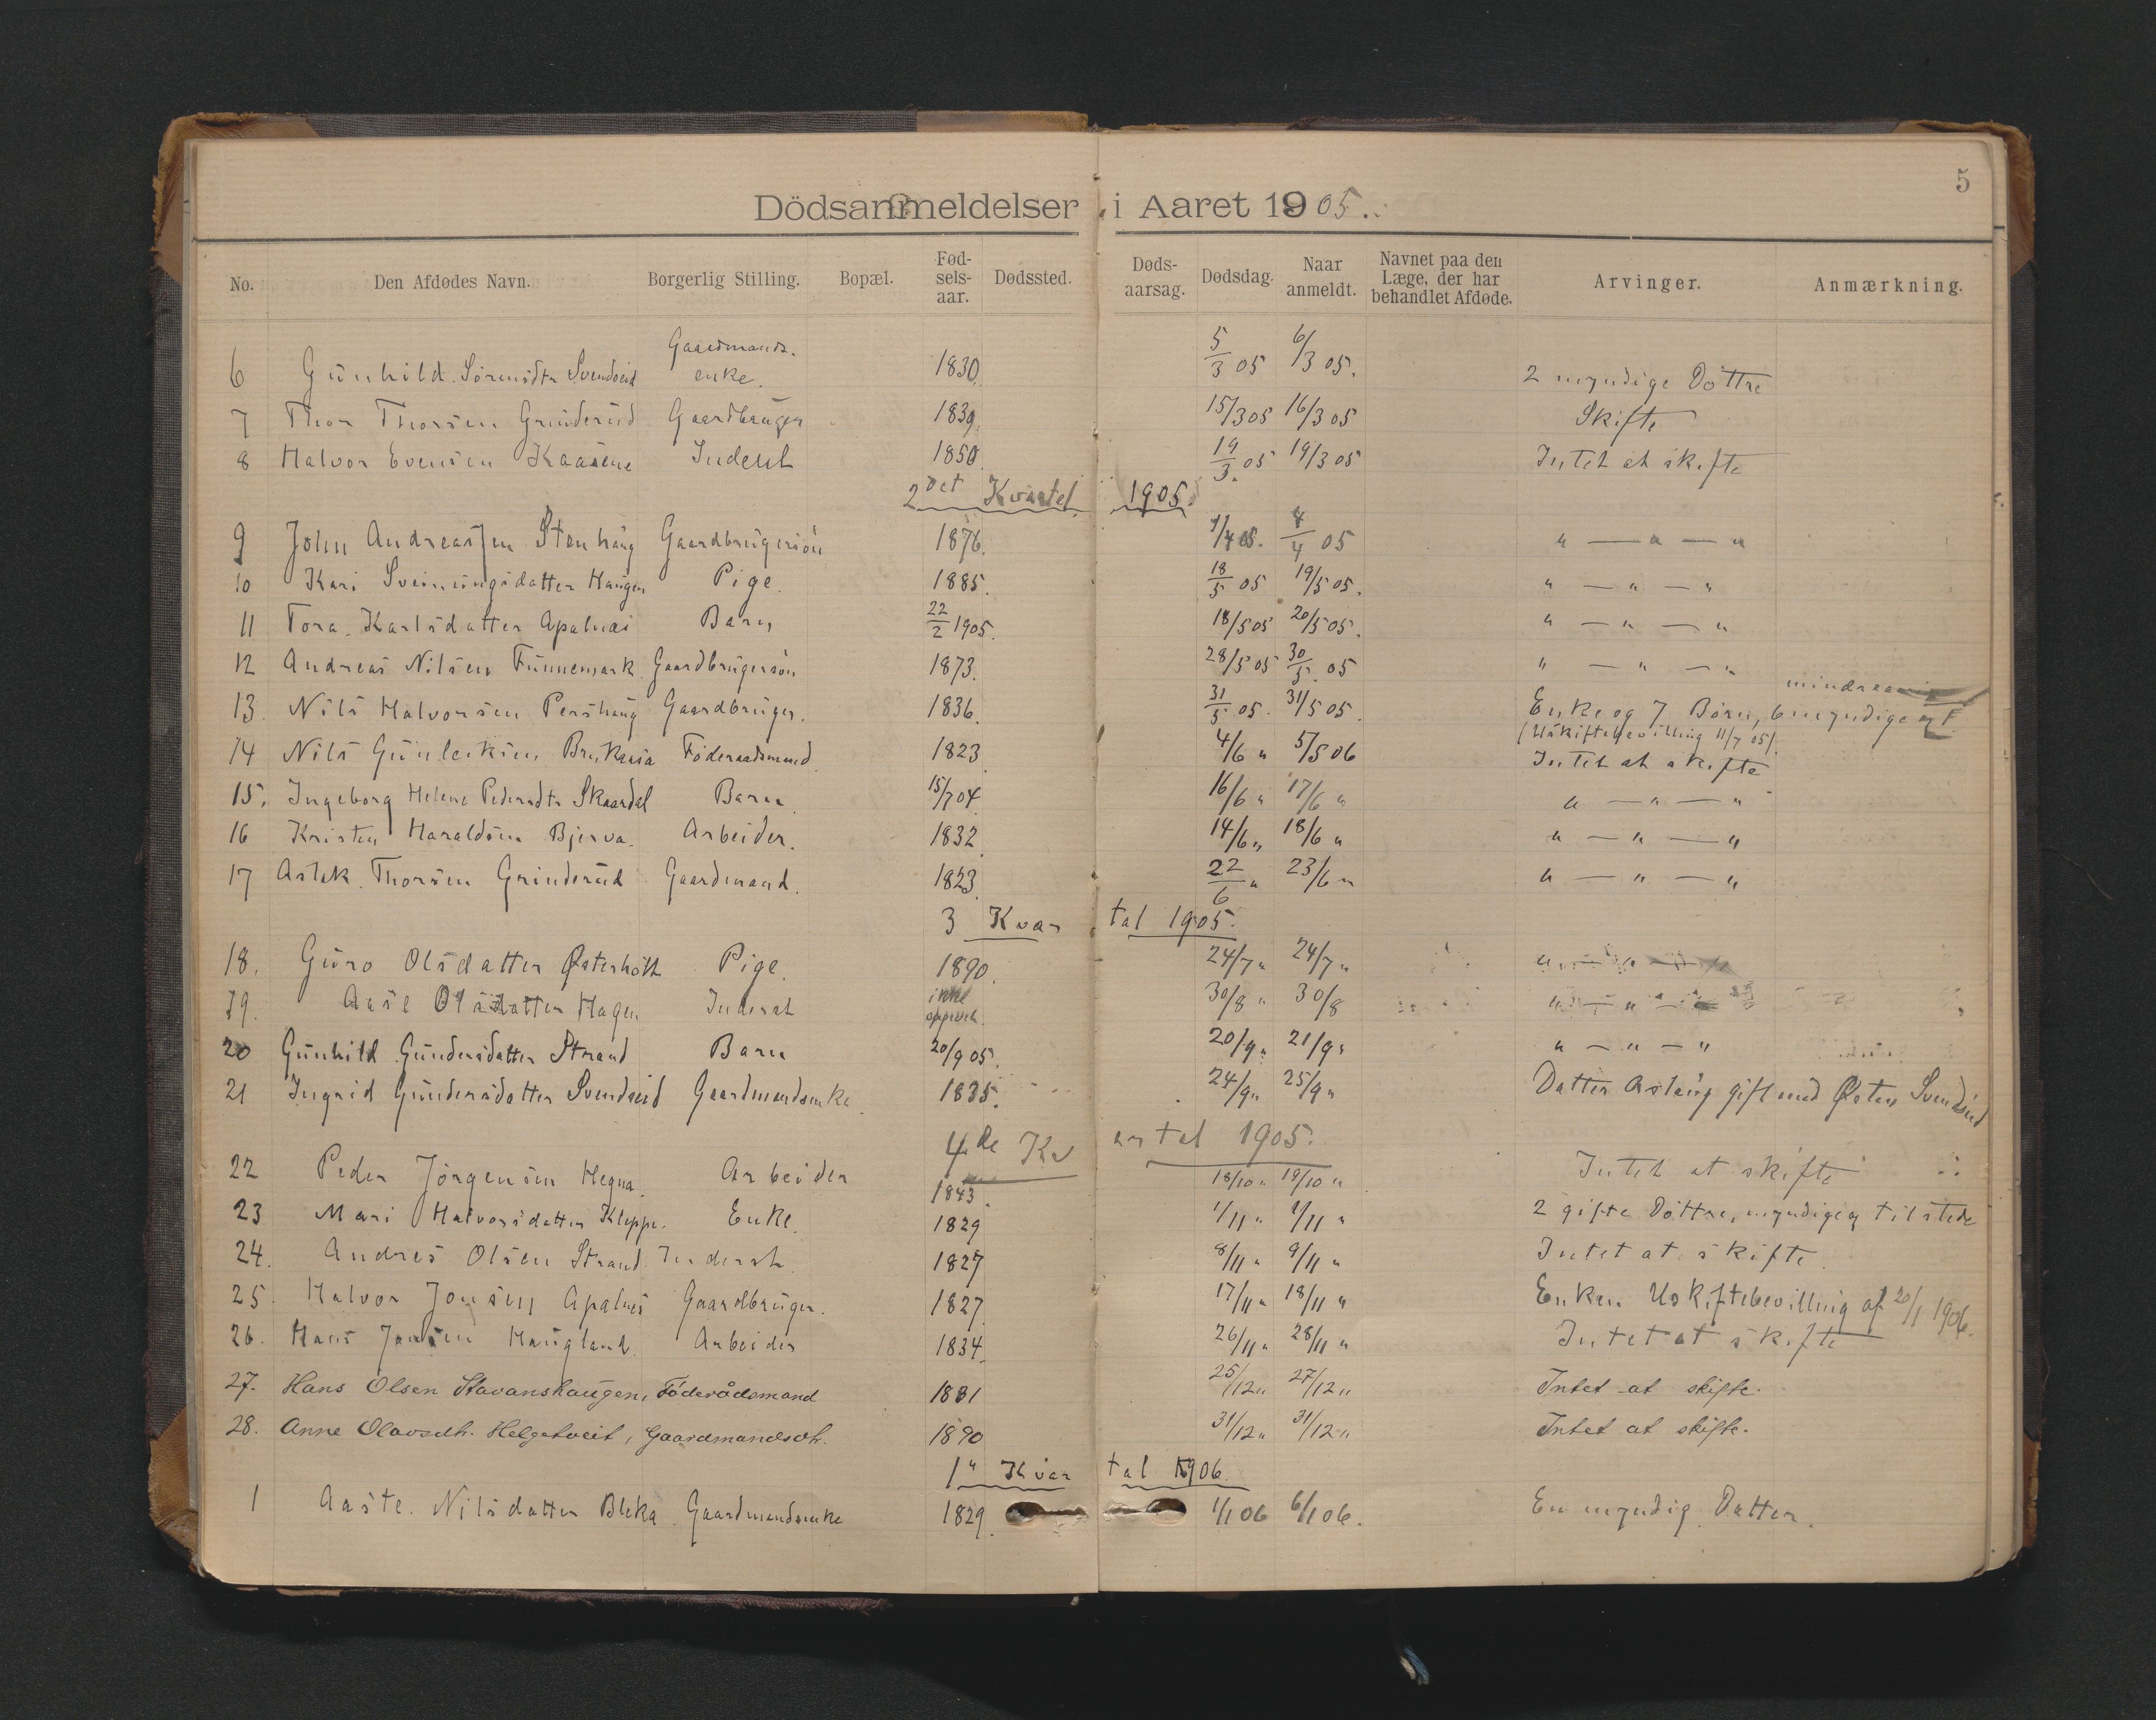 5
Dödsanmeldelser i Aaret 1905.
No. Den Afdødes Navn. Borgerlig Stilling. Bopæl. Fød-sels-aar. Dødssted. Døds-aarsag. Dødsdag. Naar anmeldt. Navnet paa den Læge, der har behandlet Afdøde. Arvinger. Anmærkning.
6 Gunhild Sörensdtr Svendseid Gaardmands-enke. 1830. 5/3 05 6/3 05. 2 myndige Döttre
7 Thor Thorsen Grinderud Gaardbruger 1839. 15/3 05 16/3 05 Skifte
8 Halvor Evensen Kaasene Inderst 1850. 19/3 05 19/3 05 Intet at skifte
2det Kvartal 1905.
9 John Andreassen Stenhaug Gaardbrugersön 1876. 1/4 05. 4/4 05 " — " — "
10 Kari Sveinungsdatter Haugen Pige. 1885. 18/5 05 19/5 05. " — " — "
11 Tora Karlsdatter Apalnæs Barn 22/2 1905. 18/5 05 20/5 05. " — " — "
12 Andreas Nilsen Funnemark Gaardbrugersön 1873. 28/5 05 30/5. 05 " — " — "
13. Nils Halvorsen Pershaug Gaardbruger. 1836. 31/5 05. 31/5 05. Enke og 7 Börn, 6 myndige og 1 mindreaarig
(Uskiftebevilling 11/7 05).
14 Nils Gunleiksen Brukaasa Föderaadsmand 1823 4/6 " 5/5 06 Intet at skifte
15. Ingeborg Helene Pedersdtr Skaardal Barn 15/7 04. 16/6 " 17/6 " " — " — "
16 Kristen Haraldsen Bjerva. Arbeider. 1832. 14/6 " 18/6 " " — " — "
17 Aslak Thorsen Grinderud Gaardmand. 1823. 22/6 " 23/6 " " — " — "
3 Kvartal 1905.
18. Guro Olsdatter Østerholt Pige. 1890. 24/7 " 24/7 " " — " — "
19. Aase Olsdatter Hagen Inderst ikke 30/8 " 30/8 " — " — "
20 Gunhild Gundersdatter Strand Barn 20/9 05. 20/9 " 21/9 " " — " — "
21 Ingrid Gundersdatter Svendseid Gaardmandsenke. 1835. 24/9 " 25/9 " Datter Aslaug gift med Østen Svendseid
4de Kvartal 1905.
22 Peder Jörgensen Hegna. Arbeider 1843. 18/10 " 19/10 " Intet at skifte
23 Mari Halvorsdatter Kleppe. Enke. 1829 1/11 " 1/11 " 2 gifte Döttre, myndige og tilstede
24. Andres Olsen Strand. Inderst 1827 8/11 " 9/11 " Intet at skifte.
25. Halvor Jonsen Apalnæs Gaardbruger. 1827. 17/11 " 18/11 " Enken Uskiftebevilling af 20/1 1906.
26. Hans Jansen Haugland. Arbeider 1834. 26/11 " 28/11 " Intet at skifte
27. Hans Olsen Stavanshaugen, Föderådsmand 1831 25/12 " 27/12 " Intet at skifte.
28. Anne Olavsdtr. Helgetveit, Gaardmandsdtr. 1890 31/12 " 31/12 " Intet at skifte.
1" Kvartal 1906.
1 Aaste. Nilsdatter Bleka. Gaardmandsenke 1829. 1/1 06 6/1 06. En myndig Datter.